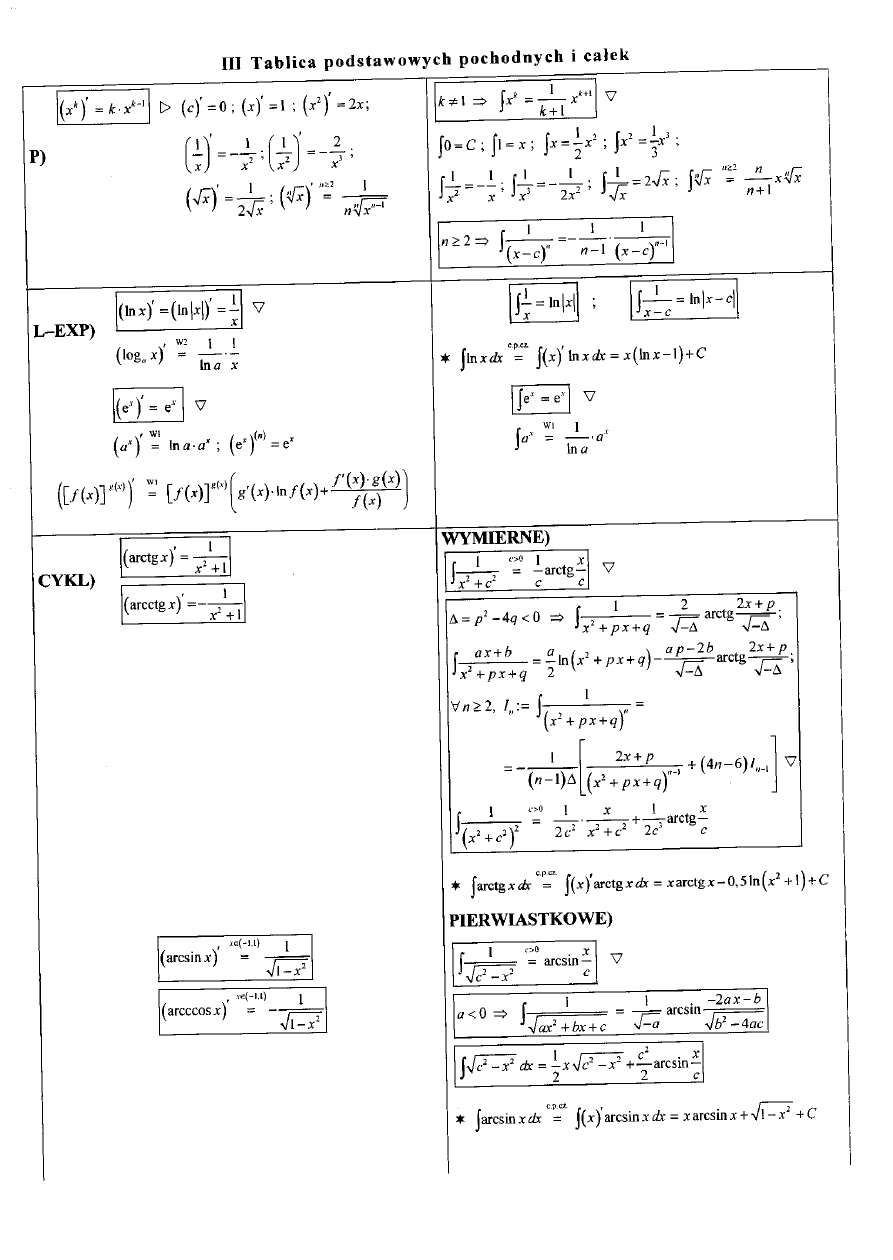 III Tablica podstawowych pochodnych i całek
P)
(x^k)' = k·x^{k-1} ▷ (c)' = 0 ; (x)' = 1 ; (x²)' = 2x;
(1/x)' = -1/x² ; (1/x²)' = -2/x³ ;
(√x)' = 1/(2√x) ; (ⁿ√x)' n≥2 = 1/(n ⁿ√(x^{n-1}))
k ≠ 1 ⇒ ∫x^k = 1/(k+1) x^{k+1} ▽
∫0 = C ; ∫1 = x ; ∫x = 1/2 x² ; ∫x² = 1/3 x³ ;
∫1/x² = -1/x ; ∫1/x³ = -1/(2x²) ; ∫1/√x = 2√x ; ∫ⁿ√x n≥2 = n/(n+1) x ⁿ√x
n ≥ 2 ⇒ ∫1/(x-c)^n = -1/(n-1) · 1/(x-c)^{n-1}
L–EXP)
(ln x)' = (ln|x|)' = 1/x ▽
(log_a x)' W2 = 1/ln a · 1/x
(e^x)' = e^x ▽
(a^x)' W1 = ln a·a^x ; (e^x)^{(n)} = e^x
([f(x)]^{g(x)})' W1 = [f(x)]^{g(x)} (g'(x)·ln f(x) + f'(x)·g(x)/f(x))
∫1/x = ln|x| ; ∫1/(x-c) = ln|x-c|
* ∫ln x dx c.p.cz. = ∫(x)' ln x dx = x(ln x-1)+C
∫e^x = e^x ▽
∫a^x W1 = 1/ln a · a^x
CYKL)
(arctg x)' = 1/(x²+1)
(arcctg x)' = -1/(x²+1)
(arcsin x)' x∈(-1,1) = 1/√(1-x²)
(arcccos x)' x∈(-1,1) = -1/√(1-x²)
WYMIERNE)
∫1/(x²+c²) c>0 = 1/c arctg x/c ▽
Δ = p²-4q < 0 ⇒ ∫1/(x²+px+q) = 2/√(-Δ) arctg (2x+p)/√(-Δ) ;
∫(ax+b)/(x²+px+q) = a/2 ln(x²+px+q) - (ap-2b)/√(-Δ) arctg (2x+p)/√(-Δ) ;
∀n ≥ 2, I_n := ∫1/(x²+px+q)^n =
= -1/((n-1)Δ) [(2x+p)/(x²+px+q)^{n-1} + (4n-6)I_{n-1}] ▽
∫1/(x²+c²)² c>0 = 1/(2c²) · x/(x²+c²) + 1/(2c³) arctg x/c
* ∫arctg x dx c.p.cz. = ∫(x)' arctg x dx = x arctg x - 0,5 ln(x²+1)+C
PIERWIASTKOWE)
∫1/√(c²-x²) c>0 = arcsin x/c ▽
a < 0 ⇒ ∫1/√(ax²+bx+c) = 1/√(-a) arcsin (-2ax-b)/√(b²-4ac)
∫√(c²-x²) dx = 1/2 x√(c²-x²) + c²/2 arcsin x/c
* ∫arcsin x dx c.p.cz. = ∫(x)' arcsin x dx = x arcsin x + √(1-x²) + C